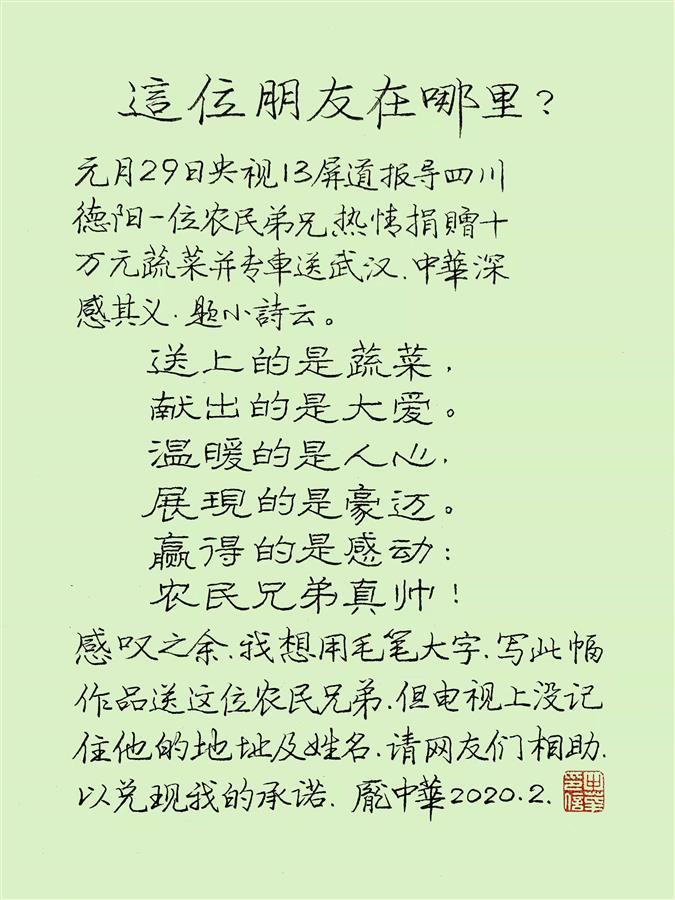 這位朋友在哪里？
元月29日央视13屏道报导四川
德阳一位农民弟兄,热情捐赠十
万元蔬菜并专車送武汉.中華深
感其义.题小詩云。
送上的是蔬菜,
献出的是大爱。
温暖的是人心,
展現的是豪迈。
赢得的是感动:
农民兄弟真帅!
感叹之余.我想用毛笔大字.写此幅
作品送这位农民兄弟.但电视上没记
住他的地址及姓名.请网友们相助.
以兑现我的承诺.龐中華2020.2.